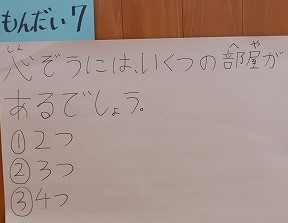 もんだい7
心ぞうには、いくつの部屋が
あるでしょう。
①2つ
②3つ
③4つ